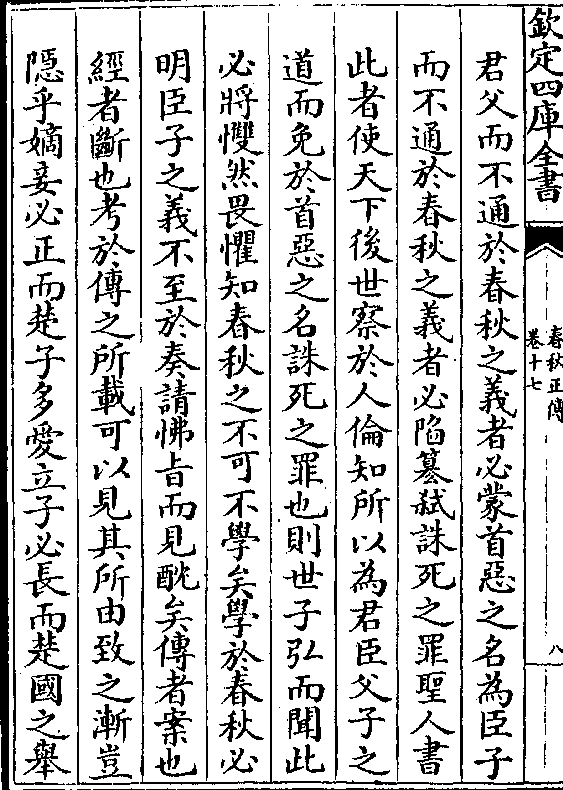 欽定四庫全書
春秋正傳
卷十七
八
君父而不通於春秋之義者必蒙首惡之名為臣子
而不通於春秋之義者必陷篡弑誅死之罪聖人書
此者使天下後世察於人倫知所以為君臣父子之
道而免於首惡之名誅死之罪也則世子弘而聞此
必將戄然畏懼知春秋之不可不學矣學於春秋必
明臣子之義不至於奏請怫旨而見酖矣傳者案也
經者斷也考於傳之所載可以見其所由致之漸豈
隱乎嫡妾必正而楚子多愛立子必長而楚國之舉